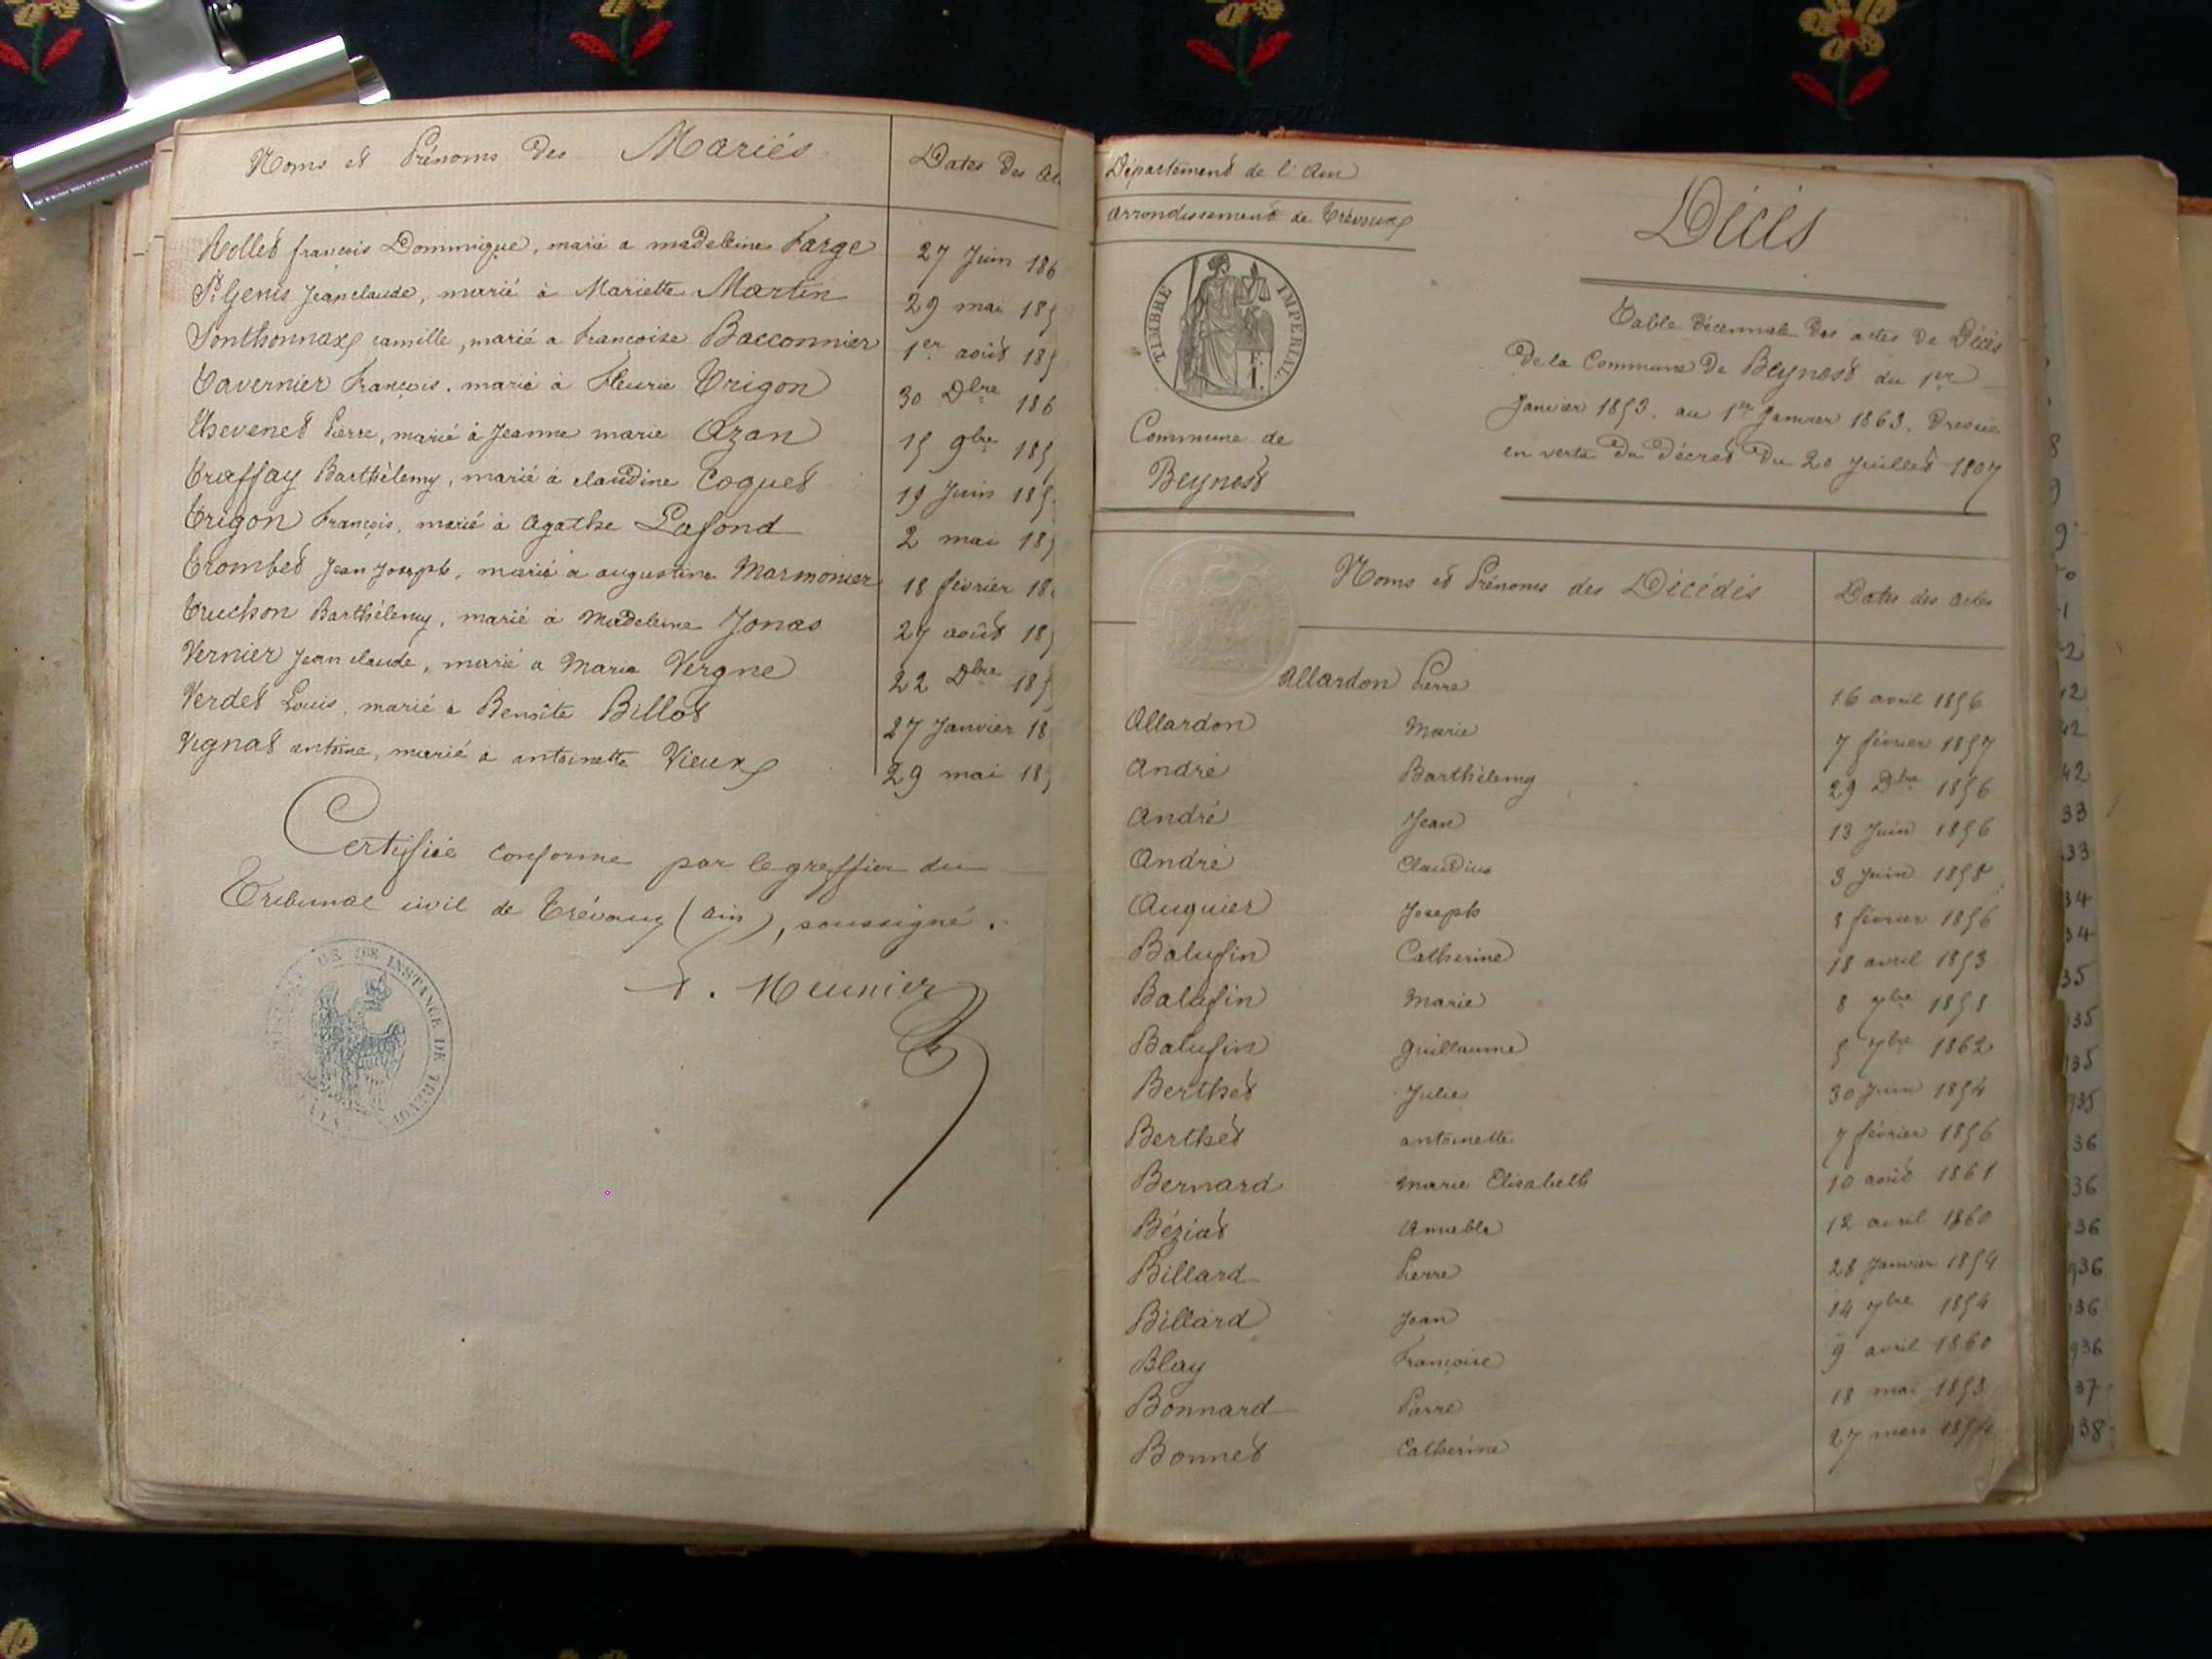 Noms et Prénoms des Mariés
Dates des
Rollet françois Dominique, marié a madeleine Farge 27 Juin 186
St Genis Jean claude, marié à Mariette Martin 29 mai 185
Sonthonnax camille, marié a francoise Bacconnier 1er août 185
Tavernier François, marié à Fleurie Trigon 30 Dbre 186
Thevenet Pierre, marié à Jeanne marie Azan 15 9bre 185
Traffay Barthélemy, marié à claudine Coquet 19 Juin 185
Trigon François, marié à Agathe Lafond 2 mai 185
Trombet Jean Joseph, marié à augustine Marmonier 18 février 18
Truchon Barthélemy, marié à Madeleine Jonas 27 août 185
Vernier Jean claude, marié a Marie Vergne 22 Dbre 185
Verdet Louis, marié à Benoîte Billot 27 Janvier 18
Vignat antoine, marié a antoinette Vieux 29 mai 185
Certifiée conforme par le greffier du
Tribunal civil de Trévoux (ain), soussigné.
Meunier
DE 1ERE INSTANCE DE TREVOUX
Département de l'Ain
Arrondissement de Trévoux
TIMBRE IMPERIAL
Commune de
Beynost
Décès
Table décennale des actes de Décès
De la Commune De Beynost du 1er
Janvier 1853. au 1er Janvier 1863. Dressée
en vertu Du Décret Du 20 Juillet 1807
Noms et Prénoms des Décédés
Dates des actes
Allardon Pierre 16 avril 1856
Allardon Marie 7 février 1857
André Barthélemy 29 Dbre 1856
André Jean 13 Juin 1856
André Claudius 3 Juin 1858
Auquier Joseph 8 février 1856
Balufin Catherine 18 avril 1853
Balufin Marie 8 7bre 1858
Balufin Guillaume 5 7bre 1862
Berthet Julie 30 Juin 1854
Berthet antoinette 7 février 1856
Bernard Marie Elisabeth 10 août 1861
Béziat Amable 12 avril 1860
Billard Pierre 28 Janvier 1854
Billard Jean 14 7bre 1854
Blay Françoise 9 avril 1860
Bonnard Pierre 18 mai 1853
Bonnet Catherine 27 mars 1854